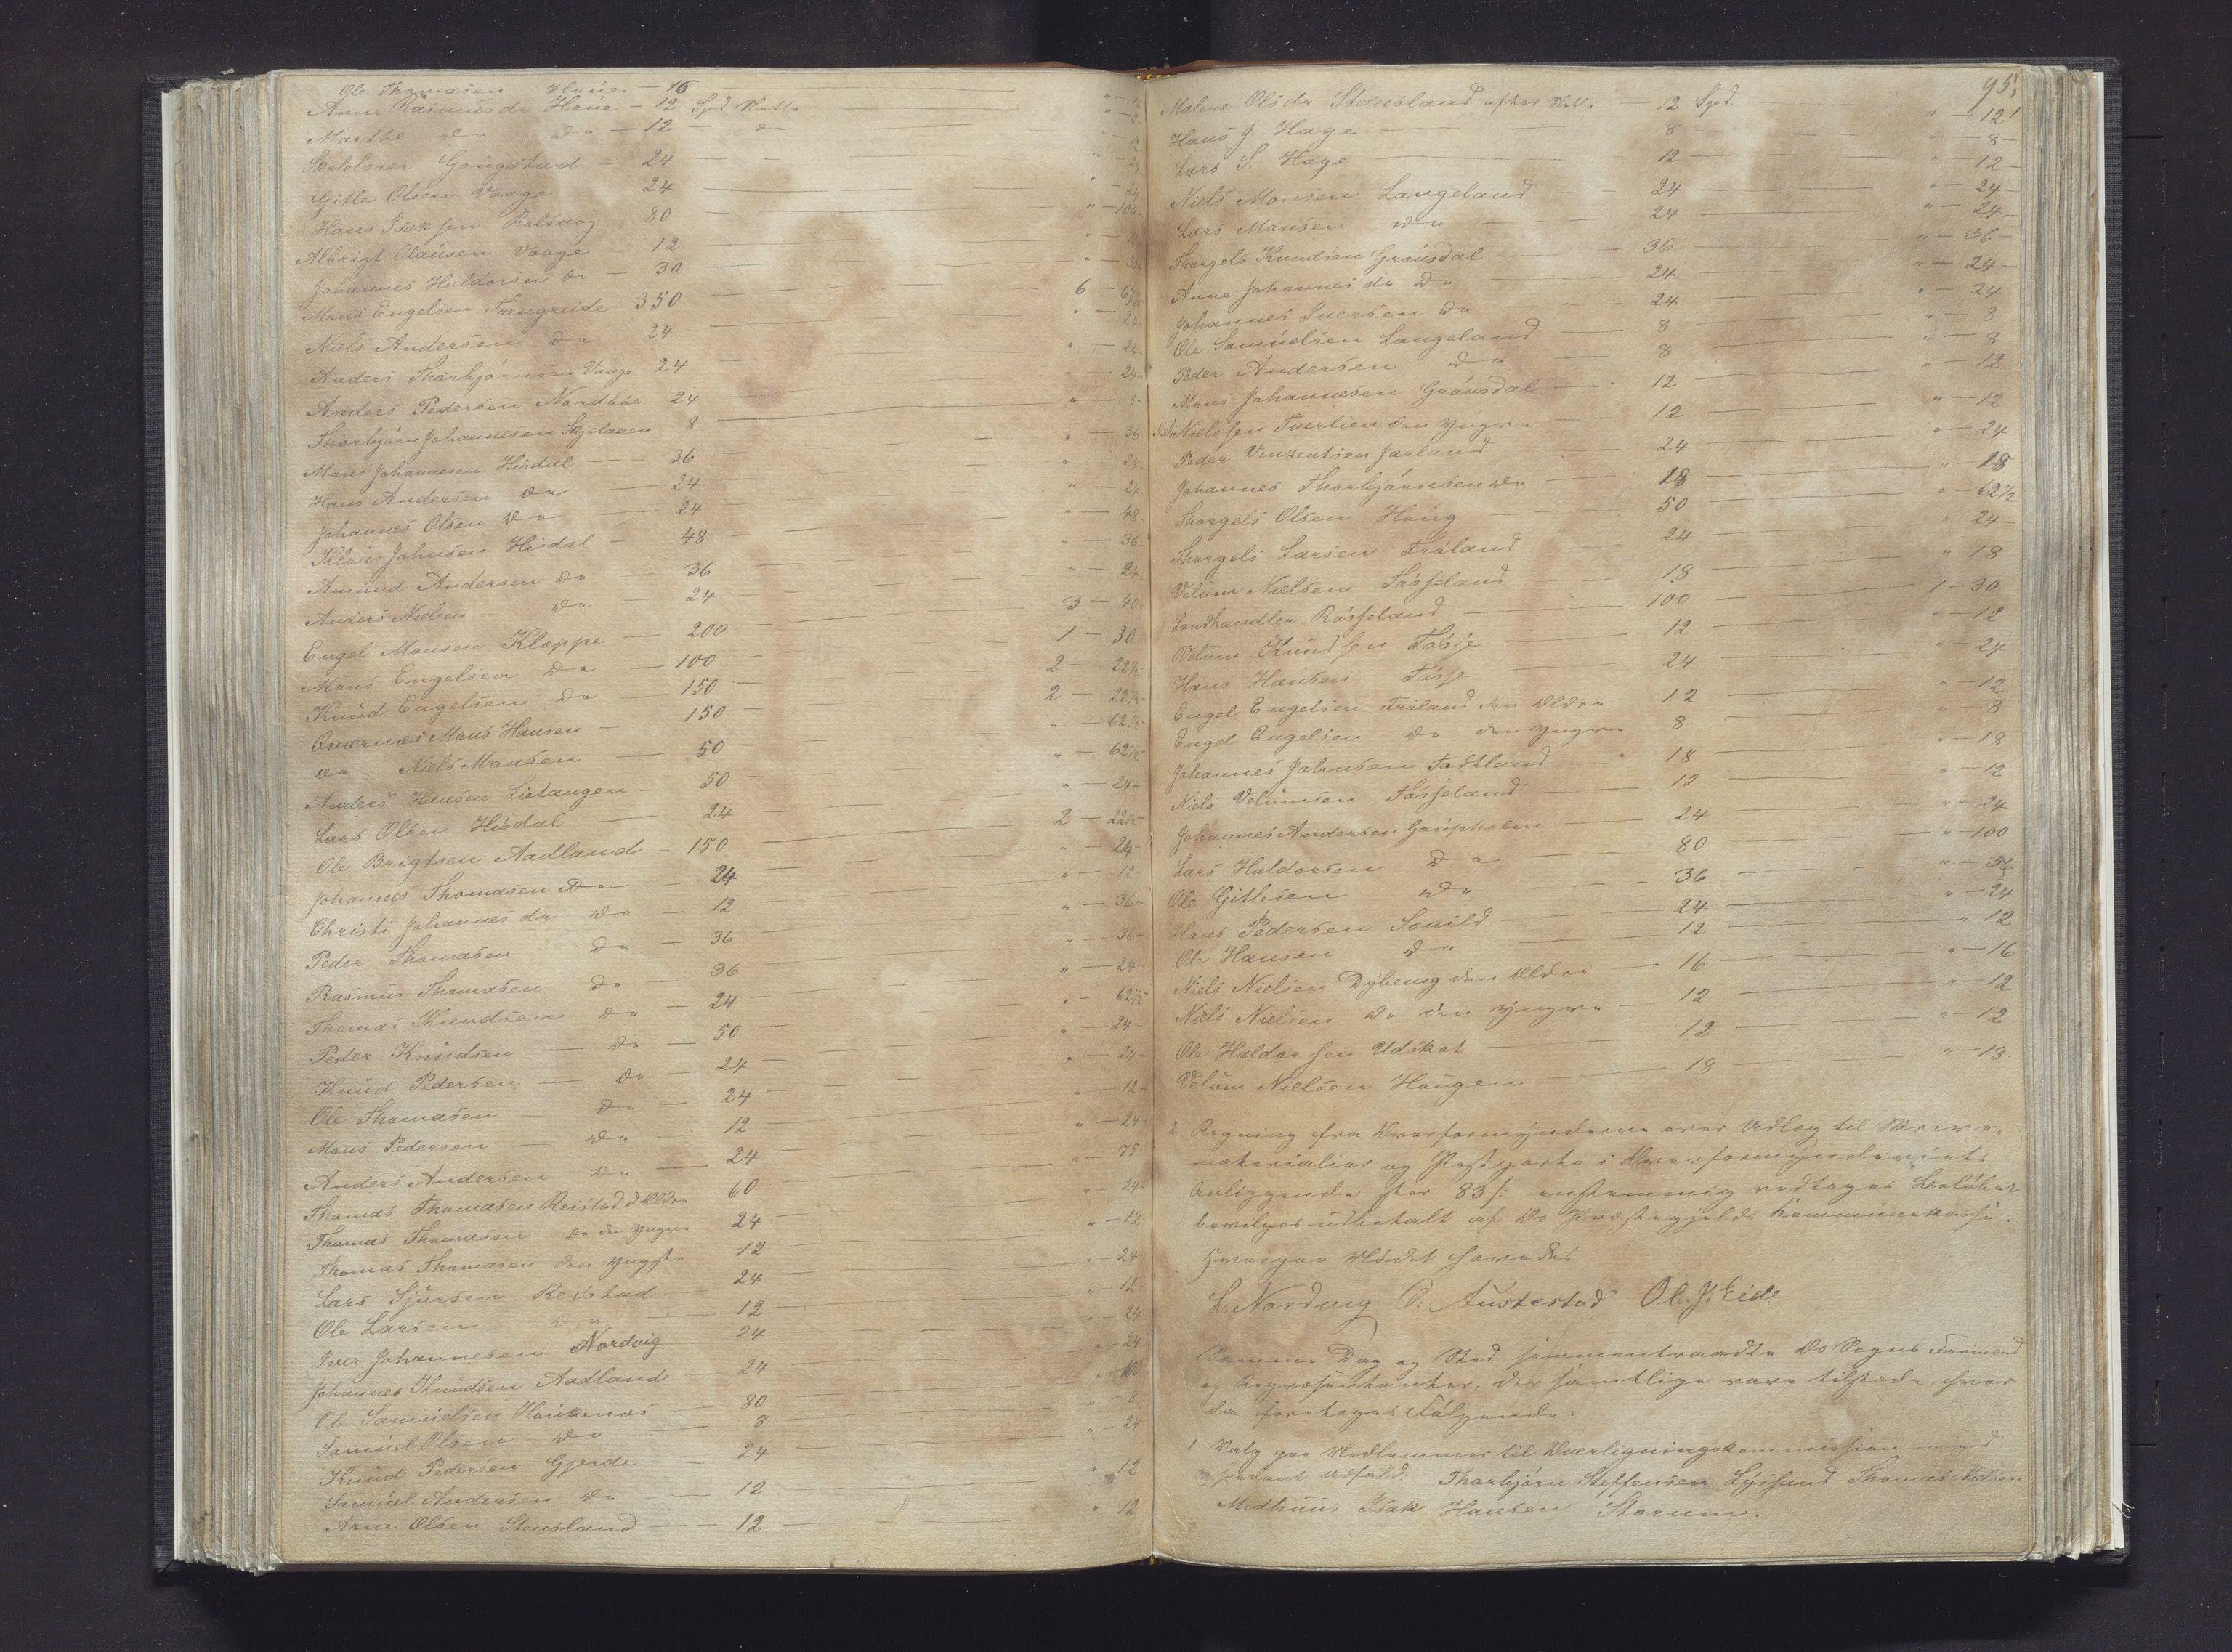 Ole Thomasen Haue — 16 " — 16
Anne Rasmusdr Haue — 12 Spd Skatte " — 12
Marthe do do — 12 — do " — 12
Skolelærer Gangstad — 24 — " — 24
Gitle Olsen Vaage 24 — " — 24
Hans Isaksen Rolsvog 80 — " — 100
Albrigt Olausen Vaage 12 — " — 12
Johannes Haldorsen do — 30 — " — 30
Mons Engelsen Trengreide 350 — 6 — 67½
Niels Andersen do 24 — " — 24
Anders Thorbjørnsen Vaage 24 — " — 24
Anders Pedersen Nordbøe 24 — " — 24
Thorbjørn Johannesen Skjelaaen 8 — " — 8
Mons Johannesen Hisdal — 36 — " — 36
Hans Andersen do — 24 — " — 24
Johannes Olsen do — 24 — " — 24
Klaus Johnsen Hisdal — 48 — " — 48
Amund Andersen do — 36 — " — 36
Anders Nielsen do — 24 — " — 24
Engel Monsen Kleppe — 200 — 3 — 40
Mons Engelsen do — 100 — 1 — 30
Knud Engelsen do — 150 — 2 — 22½
Qværnæs Mons Hansen — 150 — 2 — 22½
do Niels Monsen — 50 — " — 62½
Anders Hansen Lietangen — 50 — " — 62½
Lars Olsen Hisdal — 24 — " — 24
Ole Brigtsen Aadland — 150 — 2 — 22½
Johannes Thomasen do — 24 — " — 24
Christi Johannesdr do — 12 — " — 12
Peder Thomasen do — 36 — " — 36
Rasmus Thomasen do — 36 — " — 36
Thomas Knudsen do — 24 — " — 24
Peder Knudsen — do — 50 — " — 62½
Knud Pedersen — do — 24 — " — 24
Ole Thomasen — do — 24 — " — 24
Mons Pedersen — do 12 — " — 12
Anders Andersen do — 24 — " — 24
Thomas Thomasen Reistad d Ældre 60 — " — 75
Thomas Thomasen do den Yngre 24 — " — 24
Thomas Thomasen den Yngste 12 — " — 12
Lars Sjursen Reistad 24 — " — 24
Ole Larsen do 12 — " — 12
Iver Johannesen Nordvig 24 — " — 24
Johannes Knudsen Aadland 24 — " — 24
Ole Samuelsen Haukenæs 80 — " — 100
Samuel Olsen do 8 — " — 8
Knud Pedersen Gjerde — 24 — " — 24
Samuel Andersen do — 12 — " — 12
Arne Olsen Stensland — 12 — " — 12
95.
Malene Olsdr Stensland efter Skatte — 12 Spd. " — 12
Hans J. Hage — 8 — " — 8
Lars S. Hage — 12 — " — 12
Niels Monsen Langeland — 24 — " — 24
Lars Monsen do — 24 — " — 24
Thorgels Knudsen Grøusdal — 36 — " — 36
Anne Johannesdr do — 24 — " — 24
Johannes Iversen do — 24 — " — 24
Ole Samuelsen Langeland — 8 — " — 8
Peder Andersen do — 8 — " — 8
Mons Johannesen Grøusdal — 12 — " — 12
Niels Nielssen Tverlien den Yngre 12 — " — 12
Peder Vinzentsen Jarland 24 — " — 24
Johannes Thorbjørnsen do — 18 — " — 18
Thorgels Olsen Haug — 50 — " 62½
Thorgels Larsen Frøland — 24 — " 24
Velum Nielsen Søsseland — 18 — " 18
Landhandler Røsseland — 100 — 1 — 30
Velum Knudsen Tøsse — 12 — " — 12
Hans Hansen Tøsse — 24 — " — 24
Engel Engelsen Frøland den Ældre 12 — " — 12
Engel Engelsen do den Yngre 8 — " — 8
Johannes Johnsen Tadtland — 18 — " — 18
Niels Velumsen Søsseland — 12 — " — 12
Johannes Andersen Gaupholm — 24 — " — 24
Lars Haldorsen do — 80 — " — 100
Ole Gitlesen do — 36 — " — 36
Hans Pedersen Sæuild — 24 — " — 24
Ole Hansen do — 12 — " 12
Niels Nielsen Dyhevig den Ældre — 16 — " — 16
Niels Nielsen do den Yngre — 12 — " — 12
Ole Haldorsen Udskot — 12 — " — 12
Velum Nielsen Haugen — 18 — " — 18
2 Regning fra Overformynderne over Udlæg til Skrive-
materialier og Postporto i Overformynderiets
Anliggende stor 83 s: enstemmig vedtages Beløbet
bevilges udbetalt af Os Præstegjelds Kommunekasse.
Hvorpaa Mødet hævedes
L. Nordvig O. Austestad Ol. J. Eide
Samme Dag og Sted sammentraadte Os Sogns Formænd
og Repræsentanter, der samtlige vare tilstæde, hvor
da foretoges Følgende:
1 Valg paa Medlemmer til Overligningskommission med
saadant Udfald: Thorbjørn Steffensen Lyssand Thomas Nielsen
Midhuus Isak Hansen Storum.